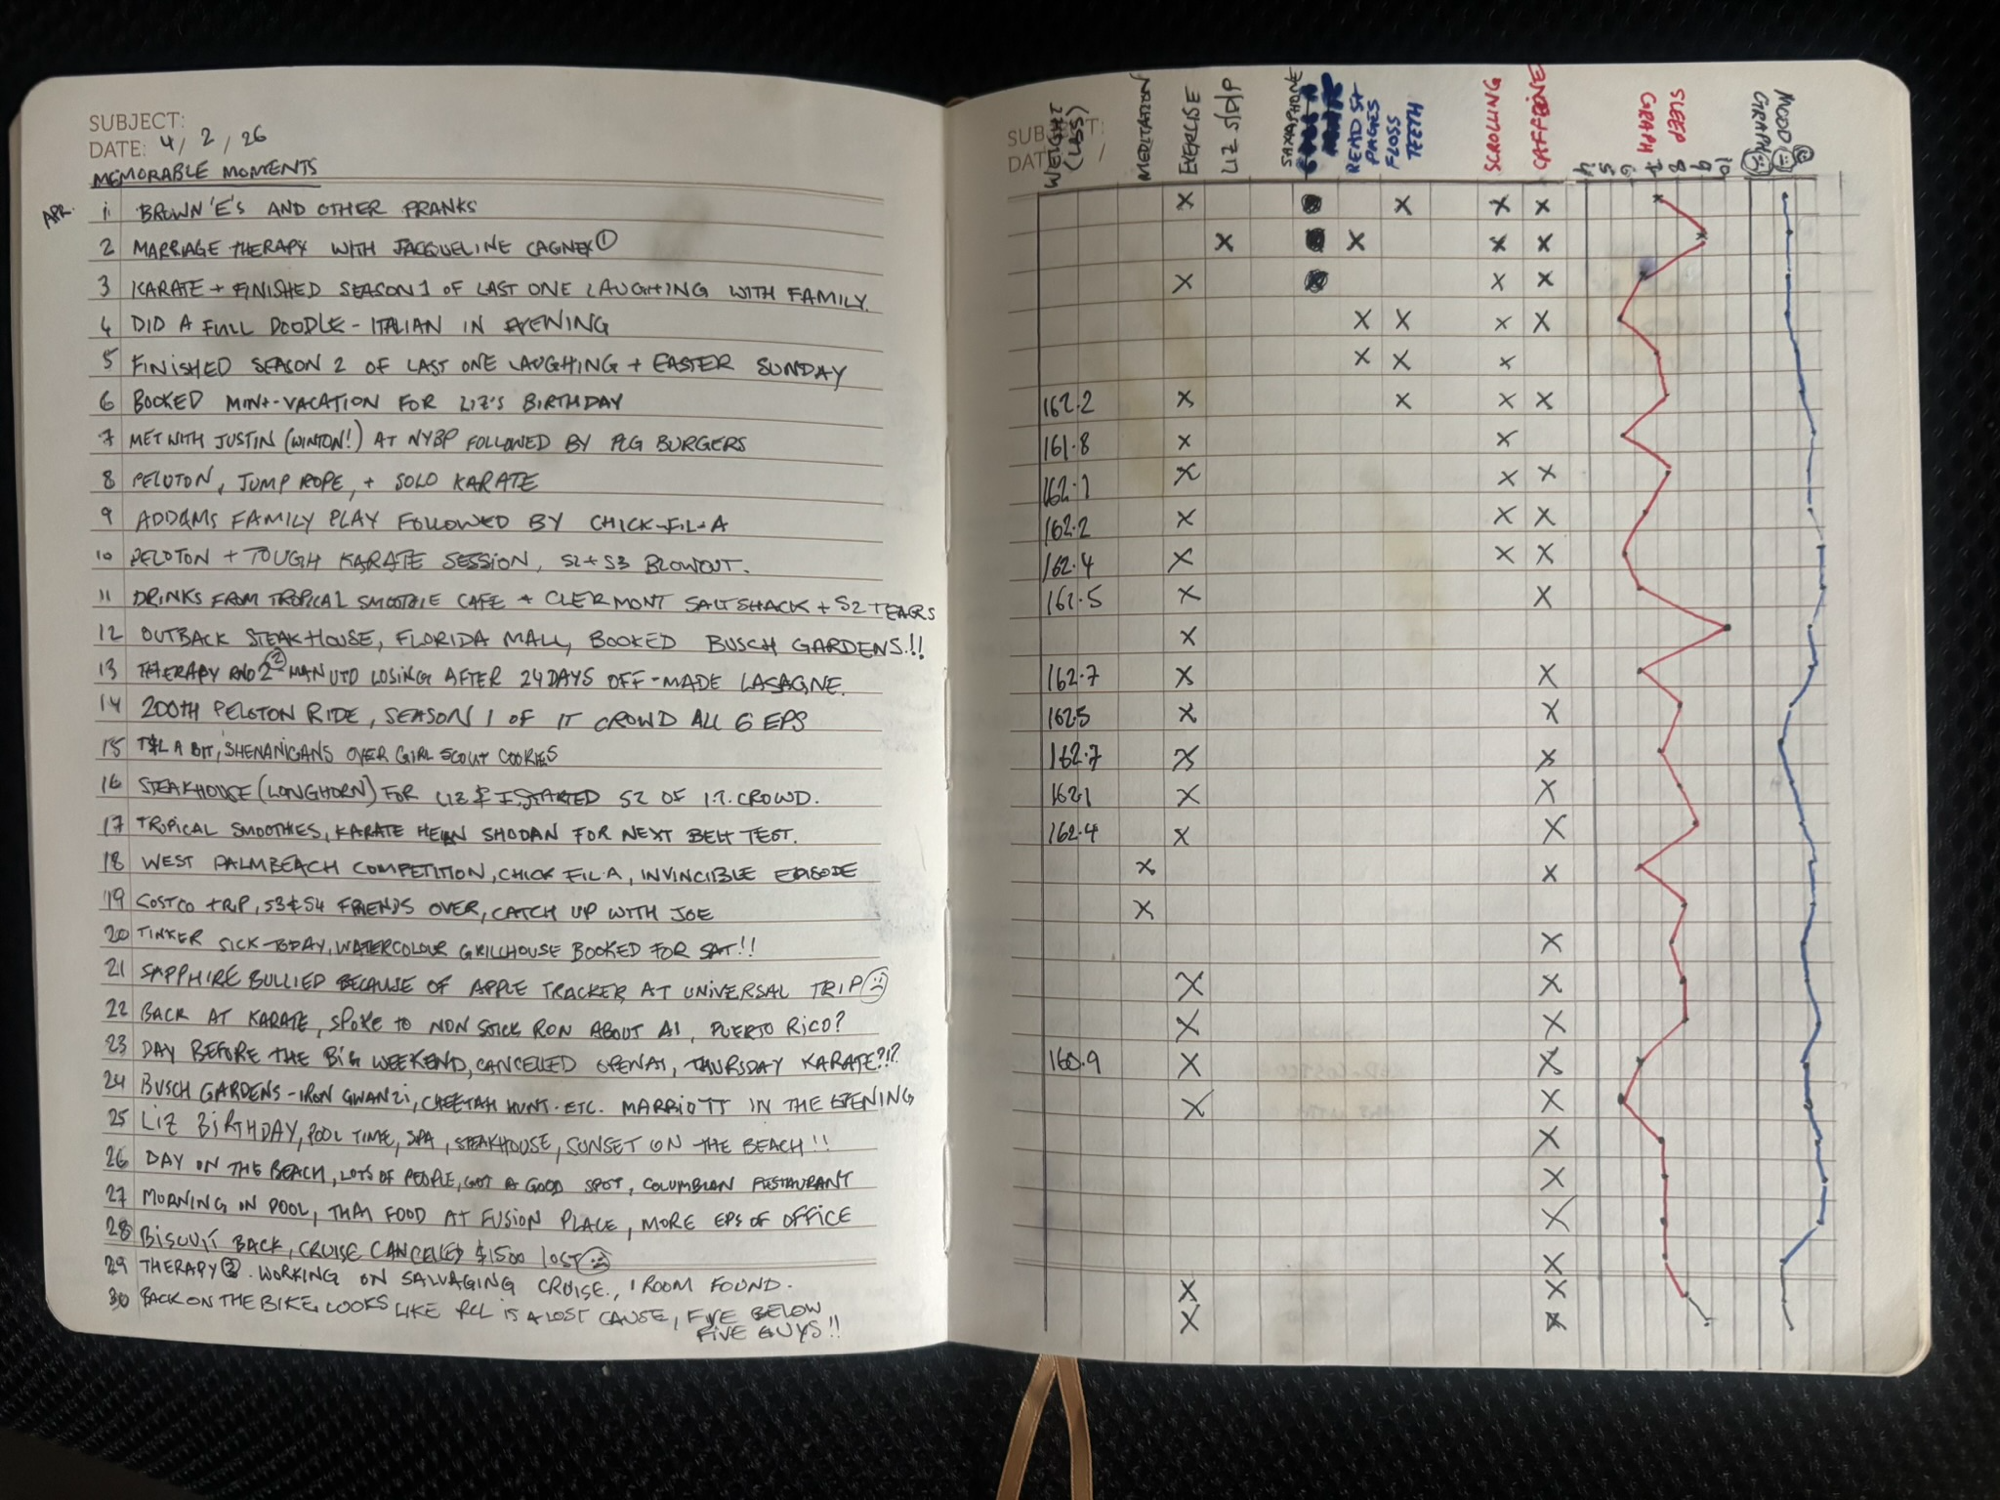 SUBJECT:
DATE: 4/2/26
MEMORABLE MOMENTS
APR. 1 BROWN'E'S AND OTHER PRANKS
2 MARRIAGE THERAPY WITH JACQUELINE ①
3 KARATE + FINISHED SEASON 1 OF LAST ONE LAUGHING WITH FAMILY.
4 DID A FULL DOODLE - ITALIAN IN EVENING
5 FINISHED SEASON 2 OF LAST ONE LAUGHING + EASTER SUNDAY
6 BOOKED MINI-VACATION FOR LIZ'S BIRTHDAY
7 MET WITH JUSTIN (WINTON!) AT NYBP FOLLOWED BY PLG BURGERS
8 PELOTON, JUMP ROPE, + SOLO KARATE
9 ADDAMS FAMILY PLAY FOLLOWED BY CHICK-FIL-A
10 PELOTON + TOUGH KARATE SESSION, S2 + S3 BLOWOUT.
11 DRINKS FROM TROPICAL SMOOTHIE CAFE + CLERMONT SALTSHACK + S2 TEARS
12 OUTBACK STEAKHOUSE, FLORIDA MALL, BOOKED BUSCH GARDENS!!
13 THERAPY AND ② MAN UTD LOSING AFTER 24 DAYS OFF - MADE LASAGNE.
14 200TH PELOTON RIDE, SEASON 1 OF IT CROWD ALL 6 EPS
15 T&L A BIT, SHENANIGANS OVER GIRL SCOUT COOKIES
16 STEAKHOUSE (LONGHORN) FOR LIZ & I, STARTED S2 OF I.T. CROWD.
17 TROPICAL SMOOTHIES, KARATE SHODAN FOR NEXT BELT TEST.
18 WEST PALMBEACH COMPETITION, CHICK FIL.A, INVINCIBLE EPISODE
19 COSTCO TRIP, S3 & S4 FRIENDS OVER, CATCH UP WITH JOE
20 TINKER SICK-BDAY, WATERCOLOUR GRILLHOUSE BOOKED FOR SAT!!
21 SAPPHIRE BULLIED BECAUSE OF APPLE TRACKER AT UNIVERSAL TRIP ☹
22 BACK AT KARATE, SPOKE TO NON STICK RON ABOUT AI, PUERTO RICO?
23 DAY BEFORE THE BIG WEEKEND, CANCELLED OPENAI, THURSDAY KARATE?!?
24 BUSCH GARDENS - IRON GWANZI, CHEETAH HUNT. ETC. MARRIOTT IN THE EVENING
25 LIZ BIRTHDAY, POOL TIME, SPA, STEAKHOUSE, SUNSET ON THE BEACH!!
26 DAY ON THE BEACH, LOTS OF PEOPLE, GOT A GOOD SPOT, COLUMBIAN RESTAURANT
27 MORNING IN POOL, THAI FOOD AT FUSION PLACE, MORE EPS OF OFFICE
28 BISCUIT BACK, CRUISE CANCELLED $1500 LOST ☹
29 THERAPY ③. WORKING ON SALVAGING CRUISE, 1 ROOM FOUND.
30 BACK ON THE BIKE, LOOKS LIKE RCL IS A LOST CAUSE, FIVE BELOW
FIVE GUYS!!
SUBJECT:
DATE: /
WEIGHT (LBS)
MEDITATION
EXERCISE
LIZ S/D/P
SAXAPHONE
READ 5+ PAGES
FLOSS TEETH
SCROLLING
CAFFEINE
SLEEP GRAPH
4 5 6 7 8 9 10
MOOD GRAPH
X X X X
X X X X
X X X
X X X X
X X X
162.2 X X X X
161.8 X X
162.1 X X X
162.2 X X X
162.4 X X X
161.5 X X
X
162.7 X X
162.5 X X
162.7 X X
162.1 X X
162.4 X X
X X
X
X
X X
X X
160.9 X X
X X
X
X
X
X
X X
X X